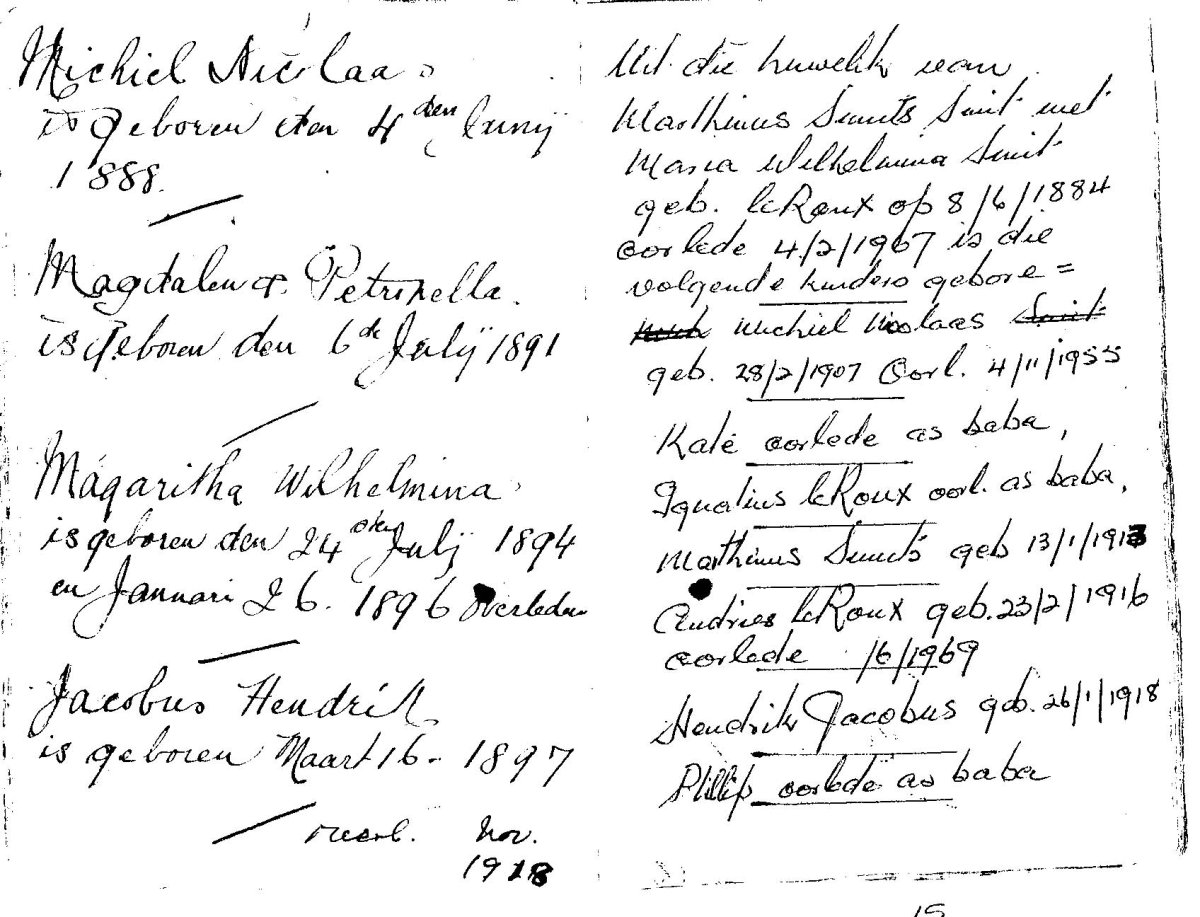 Michiel Nicolaas
is geboren den 4 den Junij
1888.
Magdalena Petronella.
is geboren den 6 de Julij 1891
Magaritha Wilhelmina
is geboren den 24 ste Julij 1894
en Januari 26. 1896 Overleden
Jacobus Hendrik
is geboren Maart 16 - 1897
overl. Nov.
1918
Uit die huwelik van
Marthinus Smuts Smit met
Maria Wilhelmina Smit
geb. le Roux op 8/6/1884
oorlede 4/2/1967 is die
volgende kinders gebore =
Michiel Nicolaas Smit
geb. 28/2/1907 Oorl. 4/11/1955
Kate oorlede as baba,
Ignatius le Roux oorl. as baba,
Marthinus Smuts geb 13/1/1913
Andries le Roux geb. 23/2/1916
oorlede /6/1969
Hendrik Jacobus geb. 26/1/1918
Phillip oorlede as baba